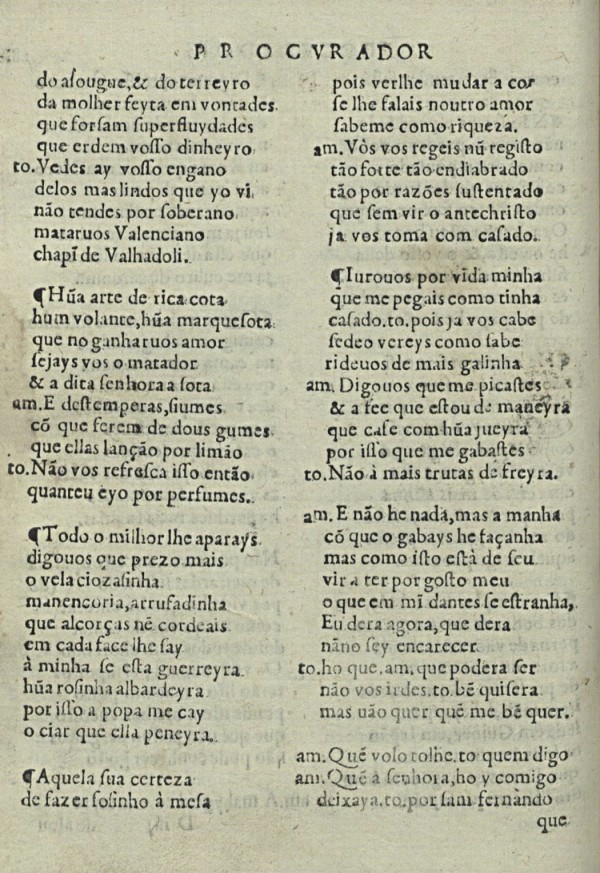 PROCVRADOR
do aſougue,& do terreyro
da molher feyta em vontades.
que forſam ſuperfluydades
que erdem voſſo dinheyro
to.Vedes ay voſſo engano
delos mas lindos que yo vi
não tendes por ſoberano
mataruos Valenciano
chapĩ de Valhadoli.
¶Hũa arte de rica cota
hum volante,hũa marqueſota
que no ganharuos amor
ſejays vos o matador
& a dita ſenhora a ſota
am.E deſtemperas,ſiumes
cõ que ferem de dous gumes
que ellas lanção por limão
to.Não vos refreſca iſſo então
quanteu eyo por perfumes.
¶Todo o milhor lhe aparays
digouos que prezo mais
o vela ciozaſinha
manencoria,arrufadinha
que alcorças nẽ cordeais
em cada face lhe ſay
à minha ſe eſta guerreyra
hũa roſinha albardeyra
por iſſo a popa me cay
o ciar que ella peneyra.
¶Aquela ſua certeza
de fazer ſoſinho à meſa
pois verlhe mudar a cor
ſe lhe falais noutro amor
ſabeme como riqueza.
am.Vòs vos regeis nũ regiſto
tão forte tão endiabrado
tão por razões ſuſtentado
que ſem vir o antechriſto
ja vos toma com caſado.
¶Iurouos por vida minha
que me pegais como tinha
caſado.to.pois ja vos cabe
ſedeo vereys como ſabe
rideuos de mais galinha
am.Digouos que me picaſtes
& a fee que eſtou de maneyra
que caſe com hũa jueyra
por iſſo que me gabaſtes
to.Não à mais trutas de freyra.
am.E não he nada,mas a manha
cõ que o gabays he façanha
mas como iſto eſtà de ſeu
vir a ter por goſto meu
o que em mĩ dantes ſe eſtranha,
Eu dera agora,que dera
nãno ſey encarecer
to.ho que.am.que podera ſer
não vos irdes.to.bẽ quiſera
mas uão quer quẽ me bẽ quer.
am.Quẽ volo tolhe.to quem digo
am.Quẽ à ſenhora,ho y comigo
deixaya.to.por ſam fernando
que